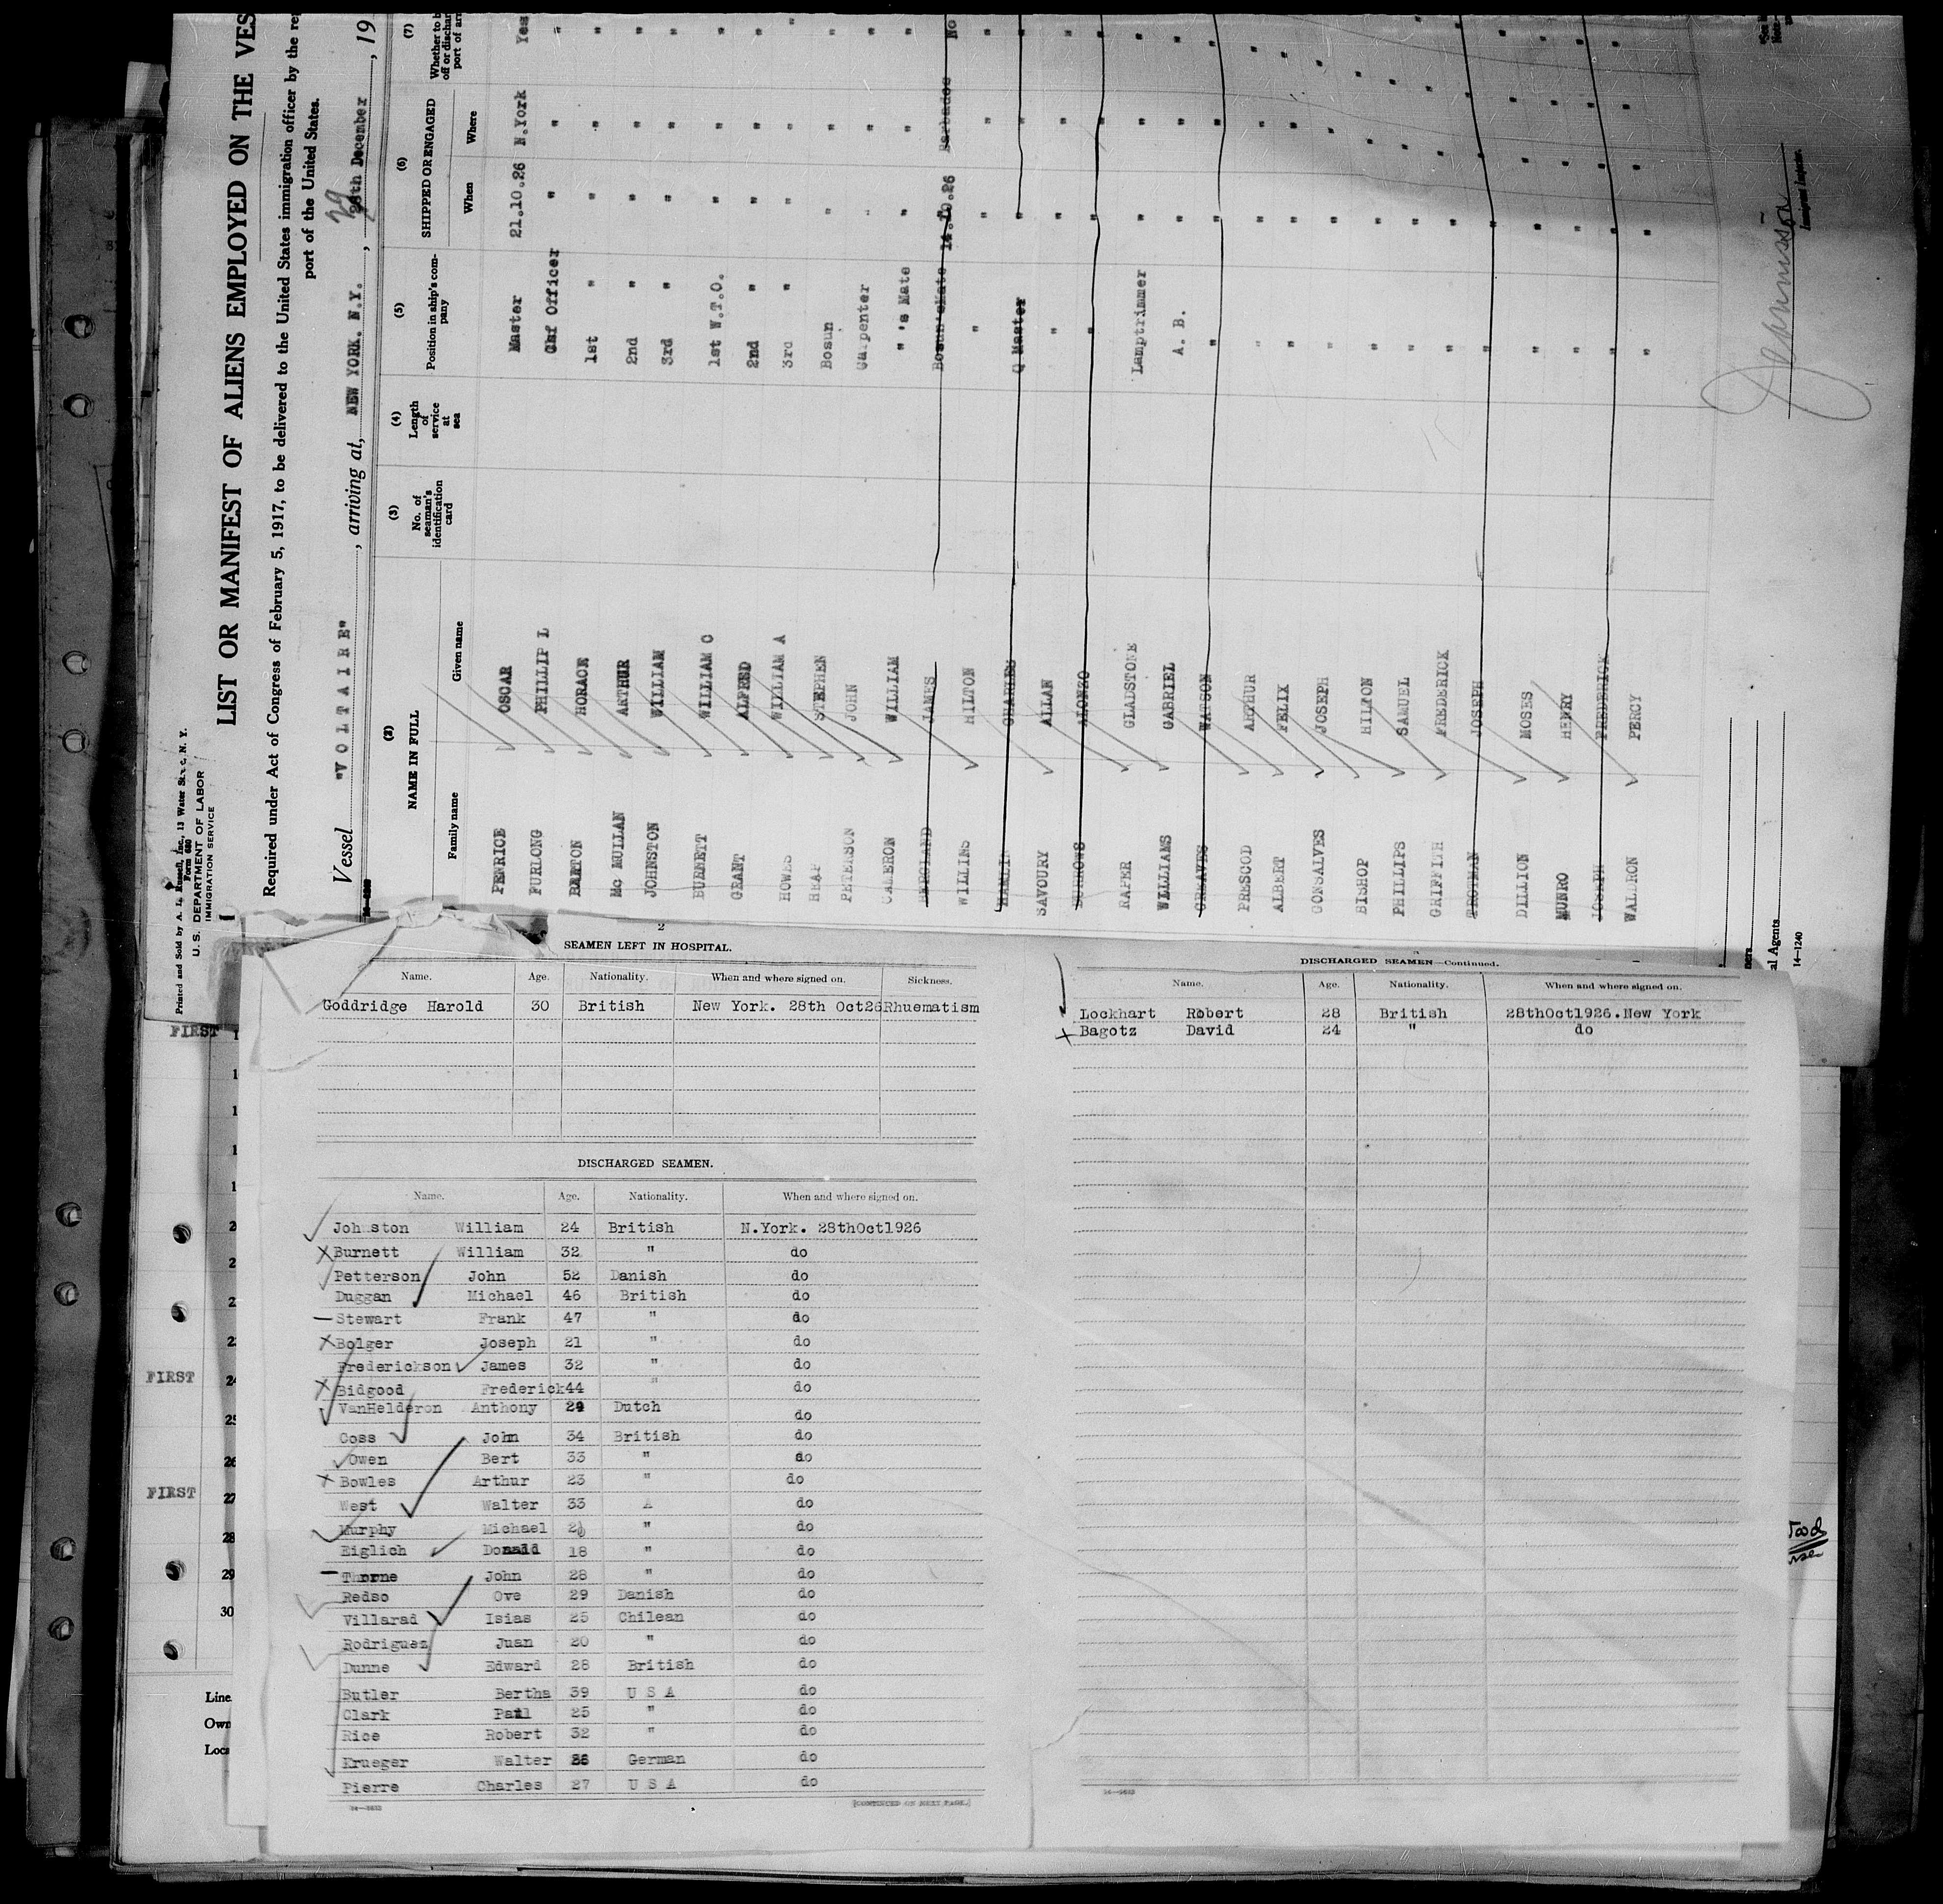 Printed and Sold by A. L. Russell, Inc., 13 Water St., N. Y.
Form 680
U. S. DEPARTMENT OF LABOR
IMMIGRATION SERVICE
LIST OR MANIFEST OF ALIENS EMPLOYED ON THE VES
Required under Act of Congress of February 5, 1917, to be delivered to the United States immigration officer by the re
port of the United States.
Vessel "VOLTAIRE", arriving at, NEW YORK. N.Y., 29 28th December, 19
(2) NAME IN FULL (3) No. of seaman's identification card (4) Length of service at sea (5) Position in ship's company (6) SHIPPED OR ENGAGED (7) Whether to b off or dischar port of arr
Family name Given name When Where
PENRICE OSCAR Master 21.10.26 N.York Yes
FURLONG PHILLIP L Chf Officer " " "
BARTON HORACE 1st " " " "
Mc MULLAN ARTHUR 2nd " " " "
JOHNSTON WILLIAM 3rd " " " "
BURNETT WILLIAM C 1st W.T.O. " " "
GRANT ALFRED 2nd " " " "
HOWES WILLIAM A 3rd " " " "
HEAP STEPHEN Bosun " " "
PETERSON JOHN Carpenter " " "
CAMERON WILLIAM " 's Mate " " "
BERGLAND JAMES Bosun'sMate 14.10.26 Barbados No
WILLINS HILTON " " " "
HAMLIN CHARLES Q Master " " "
SAVOURY ALLAN " " " "
BURROWS ALONZO " " " "
RAPER GLADSTONE Lamptrimmer " " "
WILLIAMS GABRIEL A. B. " " "
GREAVES WATSON " " " "
PRESCOD ARTHUR " " " "
ALBERT FELIX " " " "
GONSALVES JOSEPH " " " "
BISHOP HILTON " " " "
PHILLIPS SAMUEL " " " "
GRIFFITH FREDERICK " " " "
TROTMAN JOSEPH " " " "
DILLION MOSES " " " "
MUNRO HENRY " " " "
JOSEPH FREDERICK " " " "
WALDRON PERCY " " " "
Immigrant Inspector.
al Agents
14-1240
2
SEAMEN LEFT IN HOSPITAL.
Name. Age. Nationality. When and where signed on. Sickness.
Goddridge Harold 30 British New York. 28th Oct26 Rhuematism
DISCHARGED SEAMEN.
Name. Age. Nationality. When and where signed on.
Johnston William 24 British N.York. 28thOct1926
Burnett William 32 " do
Petterson John 52 Danish do
Duggan Michael 46 British do
Stewart Frank 47 " do
Bolger Joseph 21 " do
Frederickson James 32 " do
Bidgood Frederick 44 " do
VanHelderon Anthony 29 Dutch do
Coss John 34 British do
Owen Bert 33 " do
Bowles Arthur 23 " do
West Walter 33 do
Murphy Michael " do
Eiglich Donald 18 " do
Thorne John 28 " do
Redso Ove 29 Danish do
Villarad Isias 25 Chilean do
Rodriguez Juan 20 " do
Dunne Edward 28 British do
Butler Bertha 39 U S A do
Clark Paul 25 " do
Rice Robert 32 " do
Krueger Walter German do
Pierre Charles 27 U S A do
[CONTINUED ON NEXT PAGE.]
DISCHARGED SEAMEN—Continued.
Name. Age. Nationality. When and where signed on.
Lockhart Robert 28 British 28thOct1926.New York
Bagotz David 24 " do
FIRST
FIRST
FIRST
24
26
27
28
29
30
Line
Own
Loca